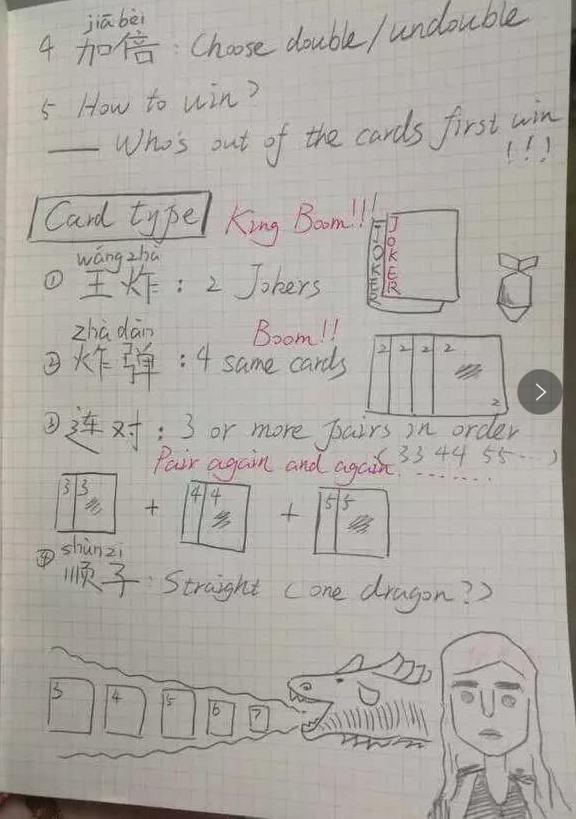 jiā bèi
4 加倍: Choose double/undouble
5 How to win?
— Who's out of the cards first win !!!
Card type King Boom!!!
wáng zhà
① 王炸: 2 Jokers
JOKER JOKER
zhà dàn Boom!!
② 炸弹: 4 same cards
2 2 2 2
2
③ 连对: 3 or more pairs in order
(33 44 55 ...)
Pair again and again.......
3 3 + 4 4 + 5 5
shùn zi
④ 顺子: Straight (one dragon?)
3 4 5 6 7